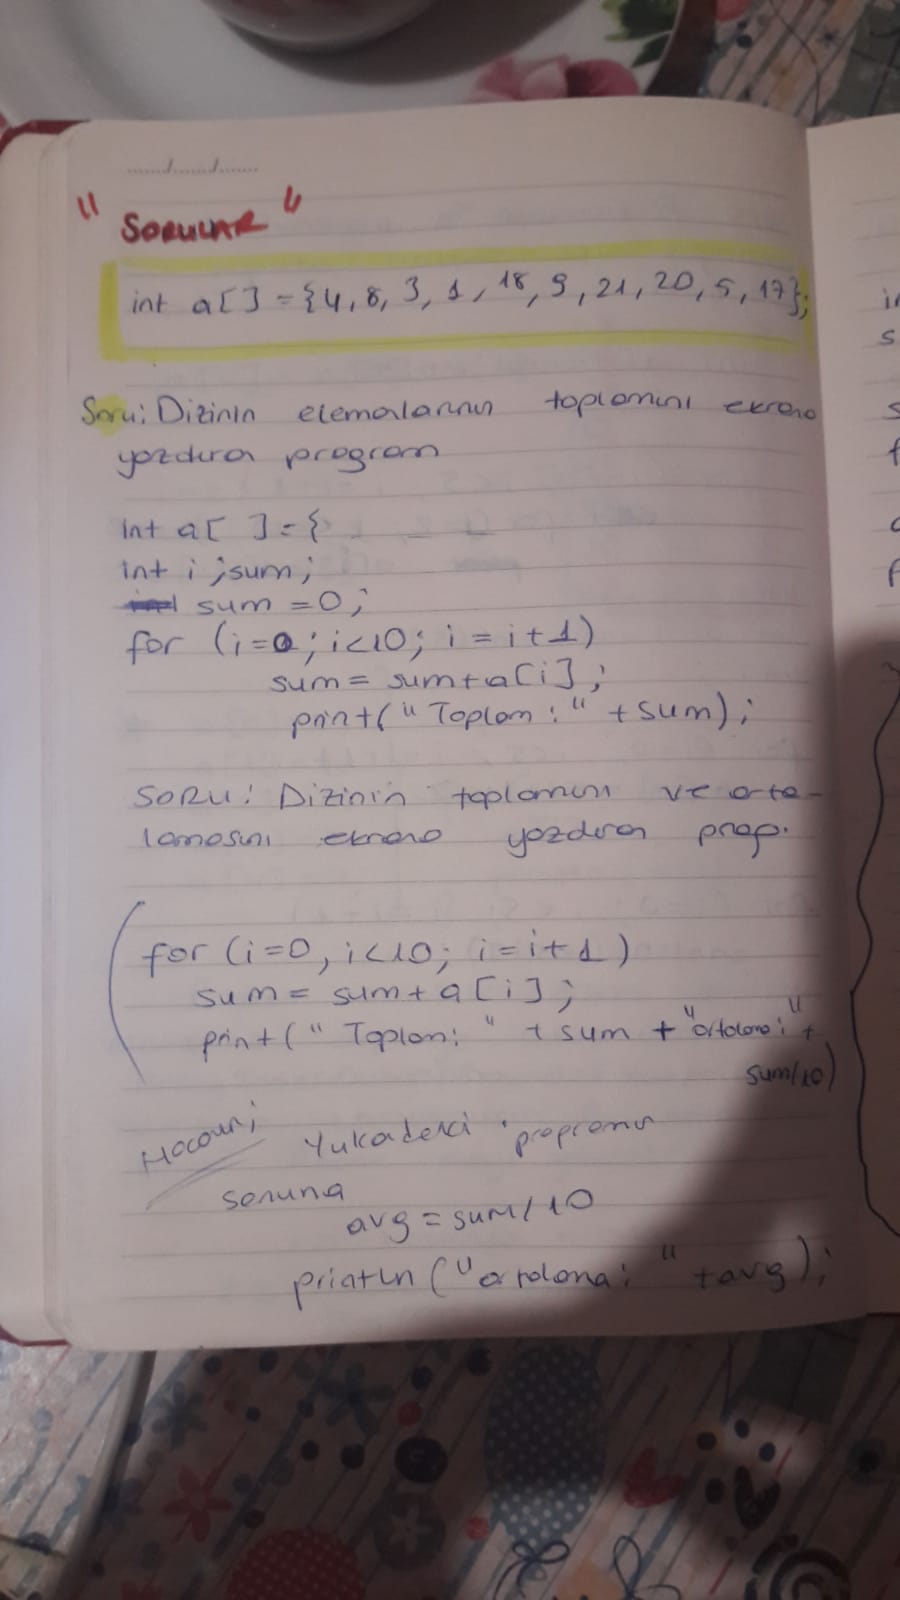 ...../...../.....
" SORULAR "
int a[ ] = {4, 8, 3, 1, 18, 9, 21, 20, 5, 17};
Soru: Dizinin elemanlarının toplamını ekrana
yazdıran program
int a[ ] = {
int i ; sum ;
sum = 0 ;
for (i=0; i<10; i = i+1)
sum = sum+a[i] ;
print(" Toplam : " + sum) ;
SORU: Dizinin toplamını ve orta-
lamasını ekrana yazdıran prog.
for (i=0, i<10; i=i+1)
sum = sum+a[i] ;
print(" Toplam: " + sum + "ortalama: " +
sum/10)
Hocanın; Yukadeki programın
sonuna
avg = sum/10
println ("ortalama: " + avg) ;